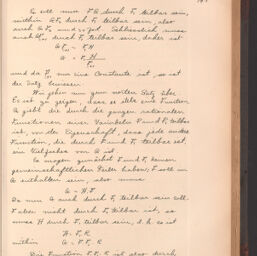 Es soll nun F G durch F₁ teilbar sein,
mithin G F₁ durch F₁ teilbar sein, also
auch
teilbar sein, daher ist
G = F₁
und da F₁₁ nur eine Constante ist, so ist
der Satz bewiesen.
Wir gehen nun zum zweiten Satz über.
Es ist zu zeigen, dass es stets eine Funktion
G gibt die durch die ganzen rationalen
Funktionen einer Variabeln F und F₁ teilbar
ist, von der Eigenschaft, dass jede andere
Funktion, die durch F und F₁ teilbar ist,
ein Vielfaches von G ist.
Es mögen zunächst F und F₁ keinen
gemeinschaftlichen Teiler haben; F soll in
G enthalten sein, also muss
G = H.F
Da nun G auch durch F₁ teilbar sein soll,
F aber nicht durch F₁ teilbar ist, so
muss H durch F₁ teilbar sein, d.h. es ist
H = F₁ R
mithin G = F. F₁ R
Die Funktion F. F₁ R ist also durch